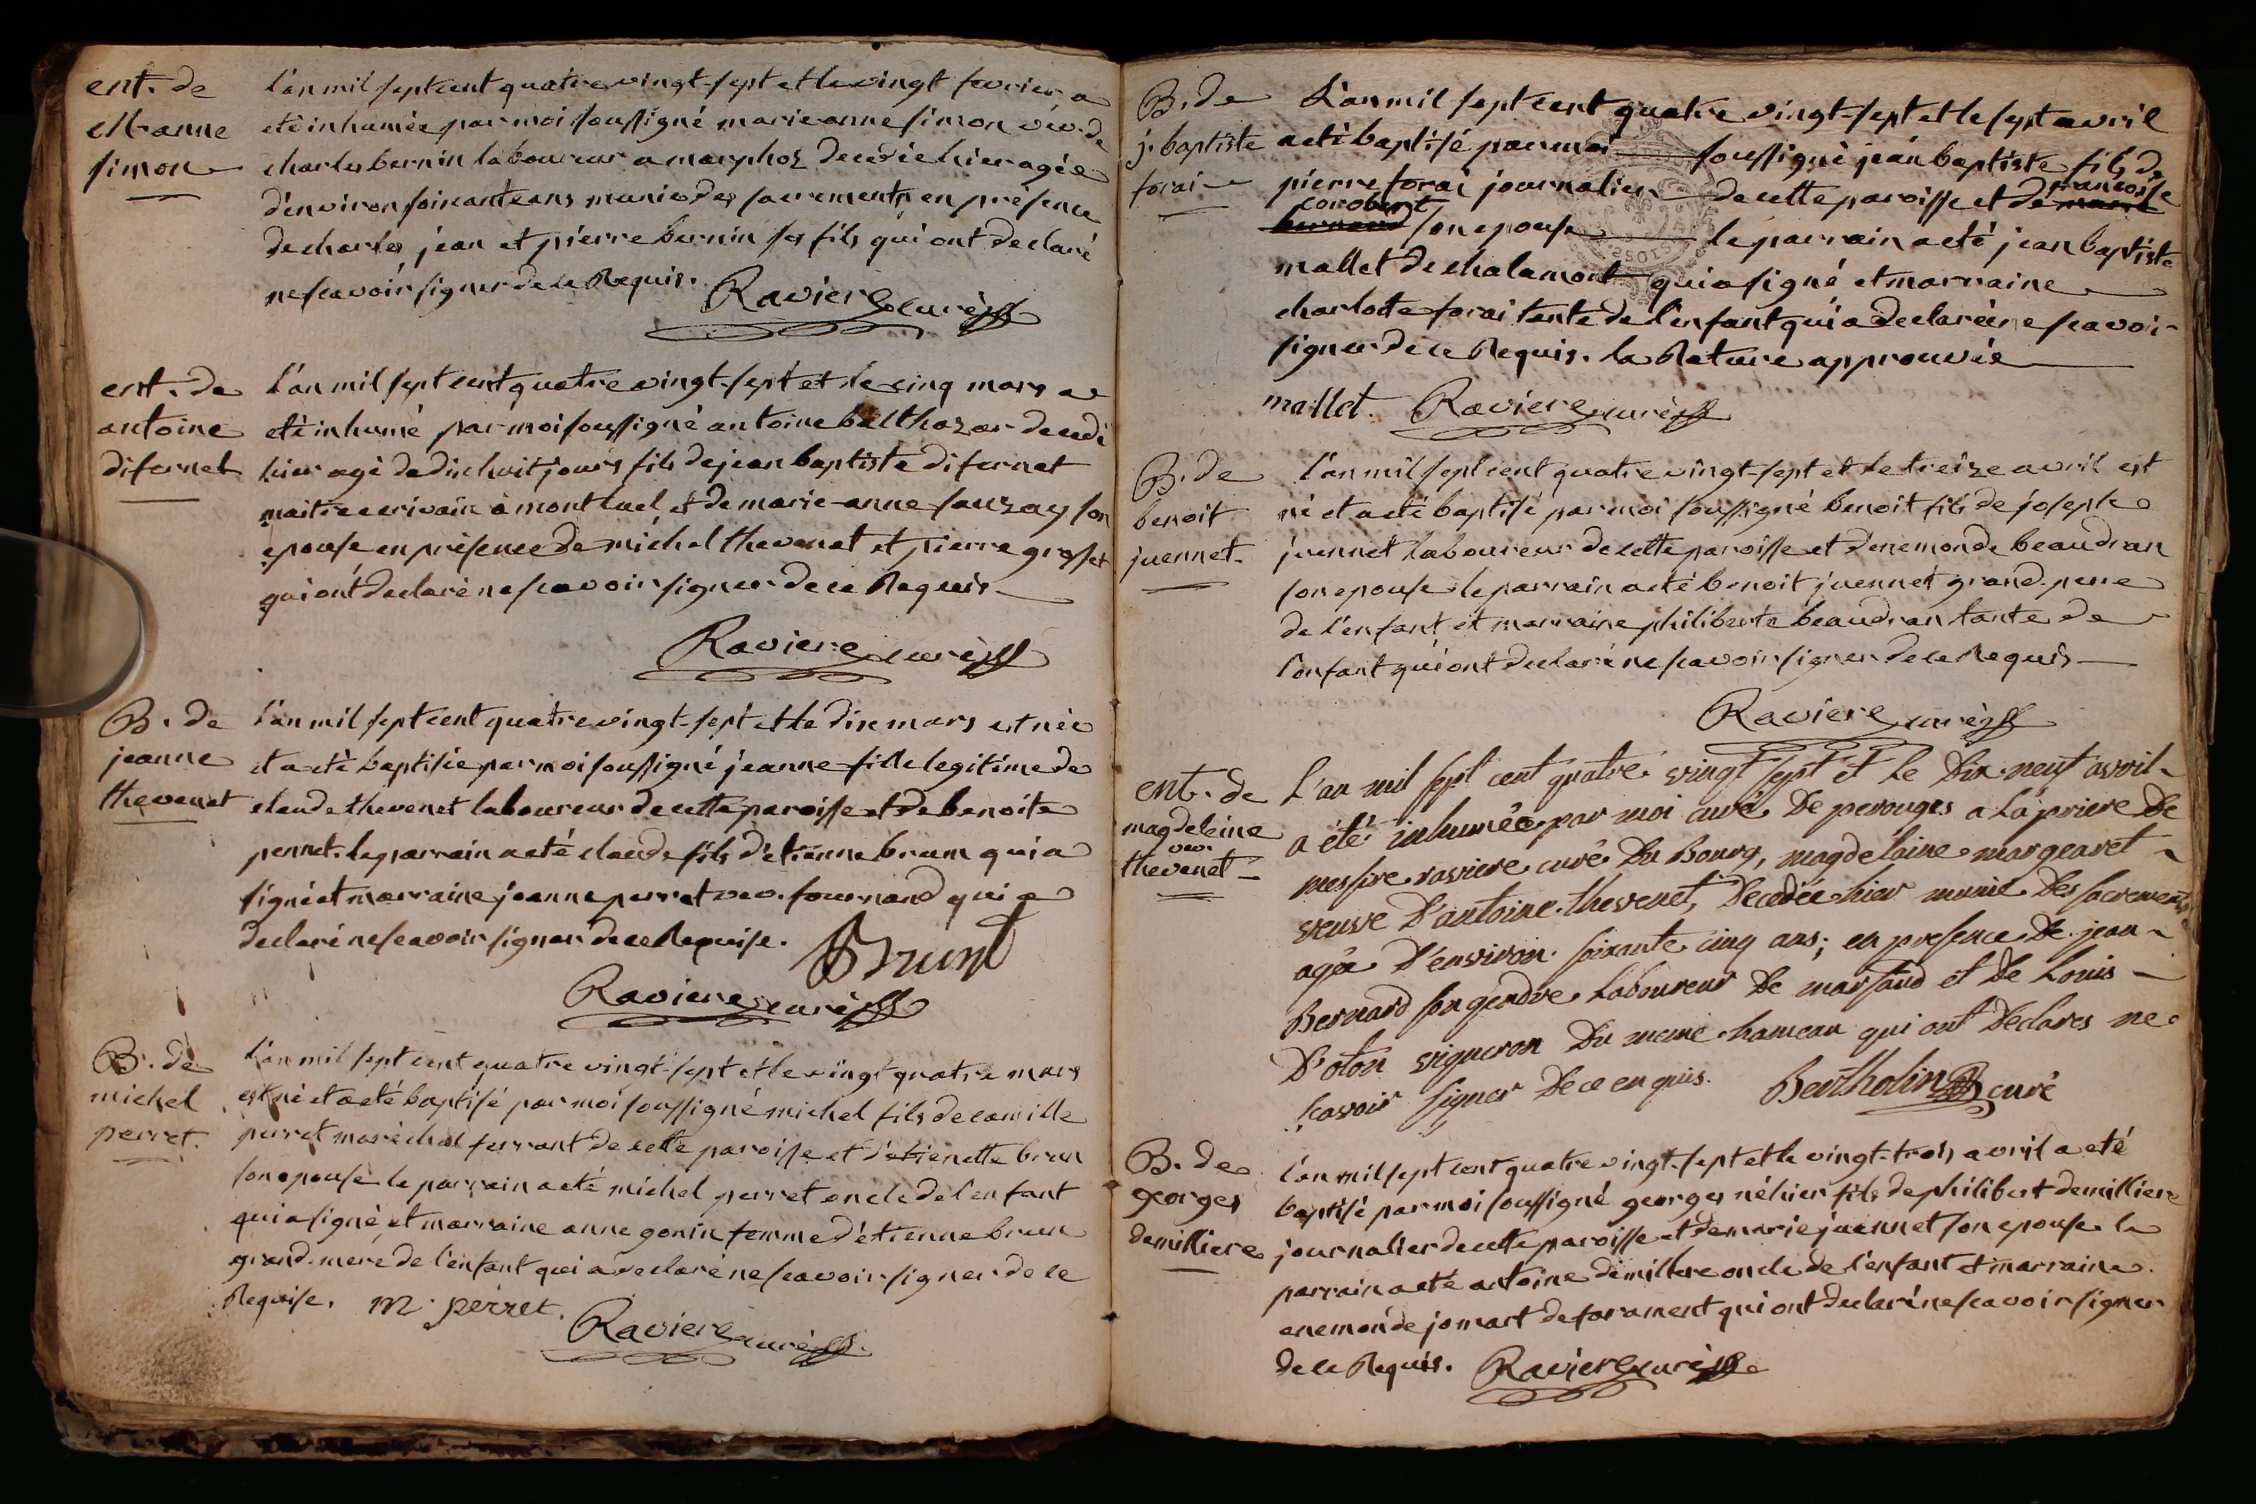 ent. de
M anne
simon
l'an mil sept cent quatre vingt-sept et le vingt fevrier a
eté inhumée par moi soussigné marie anne simon vev. de
charles bernin laboureur a marphoz decédée hier agée
d'environ soixante ans munie des sacrements en presence
de charles, jean et pierre bernin ses fils qui ont declaré
ne scavoir signer de ce Requis.
Raviere curé
ent. de
antoine
difernet
l'an mil sept cent quatre vingt-sept et le cinq mars a
eté inhumé par moi soussigné antoine balthazar decedé
hier agé de dix huit jours fils de jean baptiste difernet
maitre ecrivain à montluel et de marie-anne sauzay son
epouse en présence de michel thevenet et pierre grosset
qui ont declaré ne scavoir signer de ce Requis
Raviere curé
B. de
jeanne
thevenet
l'an mil sept cent quatre vingt-sept et le dix mars est née
et a eté baptisée par moi soussigné jeanne fille legitime de
claude thevenet laboureur de cette paroisse et de benoite
perret. le parrain a eté claude fils d'etienne brun qui a
signé et marraine jeanne perret vev. fournand qui a
declaré ne scavoir signer de ce Requise.
Brun
Raviere curé
B. de
michel
perret.
l'an mil sept cent quatre vingt-sept et le vingt quatre mars
est né et a eté baptisé par moi soussigné michel fils de camille
perret maréchal ferrant de cette paroisse et d'etienette brun
son epouse le parrain a eté michel perret oncle de l'enfant
qui a signé, et marraine anne gonin femme d'etienne brun
grand-mere de l'enfant qui a declaré ne scavoir signer de ce
Requise. m. perret.
Raviere curé
B. de
j. baptiste
forai
L'an mil sept cent quatre vingt-sept et le sept avril
a eté baptisé par moi soussigné jean baptiste fils de
pierre forai journalier de cette paroisse et de francoise
conobert son epouse le parrain a eté jean baptiste
mallet de chalamont qui a signé et marraine
charlotte forai tante de l'enfant qui a declarée ne scavoir
signer de ce Requis. la Rature approuvée
mallet. Raviere curé
B. de
benoit
juennet.
l'an mil sept cent quatre vingt-sept et le treize avril est
né et a eté baptisé par moi soussigné benoit fils de joseph
juennet laboureur de cette paroisse et d'enemonde beaudran
son epouse le parrain a eté benoit juennet grand-pere
de l'enfant et marraine philiberte beaudran tante de
l'enfant qui ont declaré ne scavoir signer de ce Requis
Raviere curé
ent. de
magdeleine
vev.
thevenet
L'an mil sept cent quatre vingt sept et le Dix neuf avril
a été inhumée par moi curé De perouges a la priere De
messire raviere curé Du Bourg, magdelaine margearet
veuve D'antoine thevenet, Decedée hier munie Des sacrements
agée D'environ soixante cinq ans; en presence De jean
Bernard son gendre Laboureur De marsand et De Louis
D'oton vigneron Du meme hameau qui ont Declares ne
scavoir signer De ce enquis. Bertholin curé
B. de
georges
demilliere
l'an mil sept cent quatre vingt-sept et le vingt-trois avril a eté
baptisé par moi soussigné georges né hier fils de philibert demilliere
journalier de cette paroisse et de marie juennet son epouse le
parrain a eté antoine demilliere oncle de l'enfant et marraine
enemonde jomart de farament qui ont declaré ne scavoir signer
de ce Requis. Raviere curé